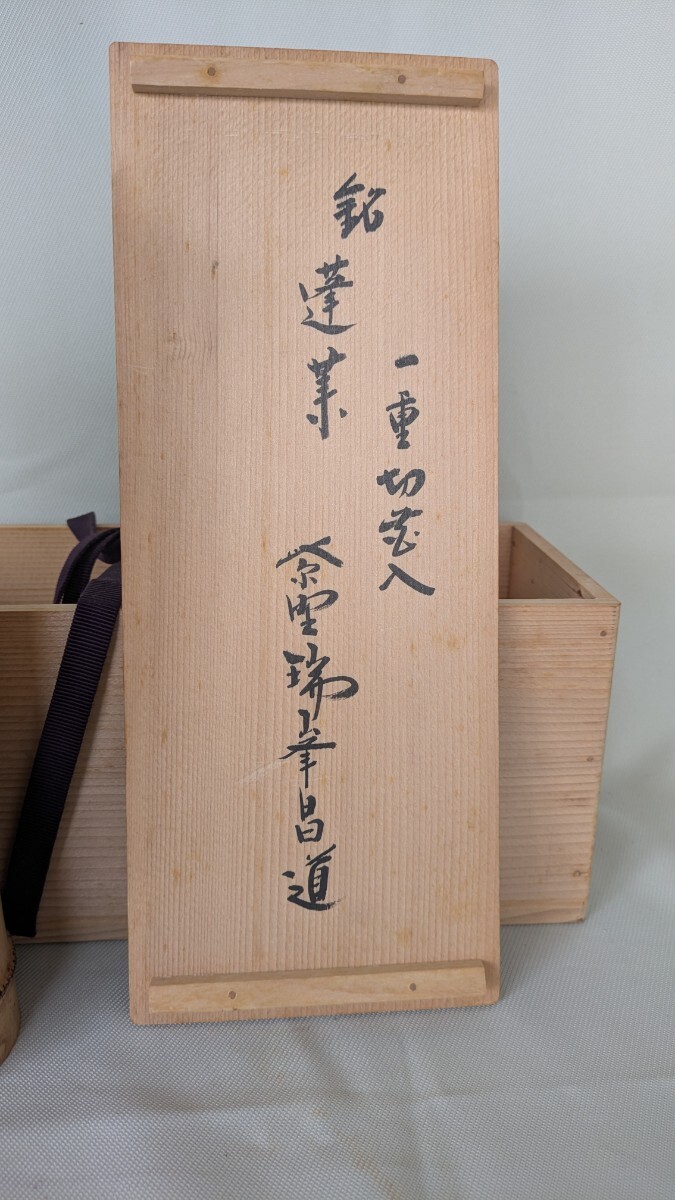 一重切花入
銘 蓬莱
紫野瑞峯昌道